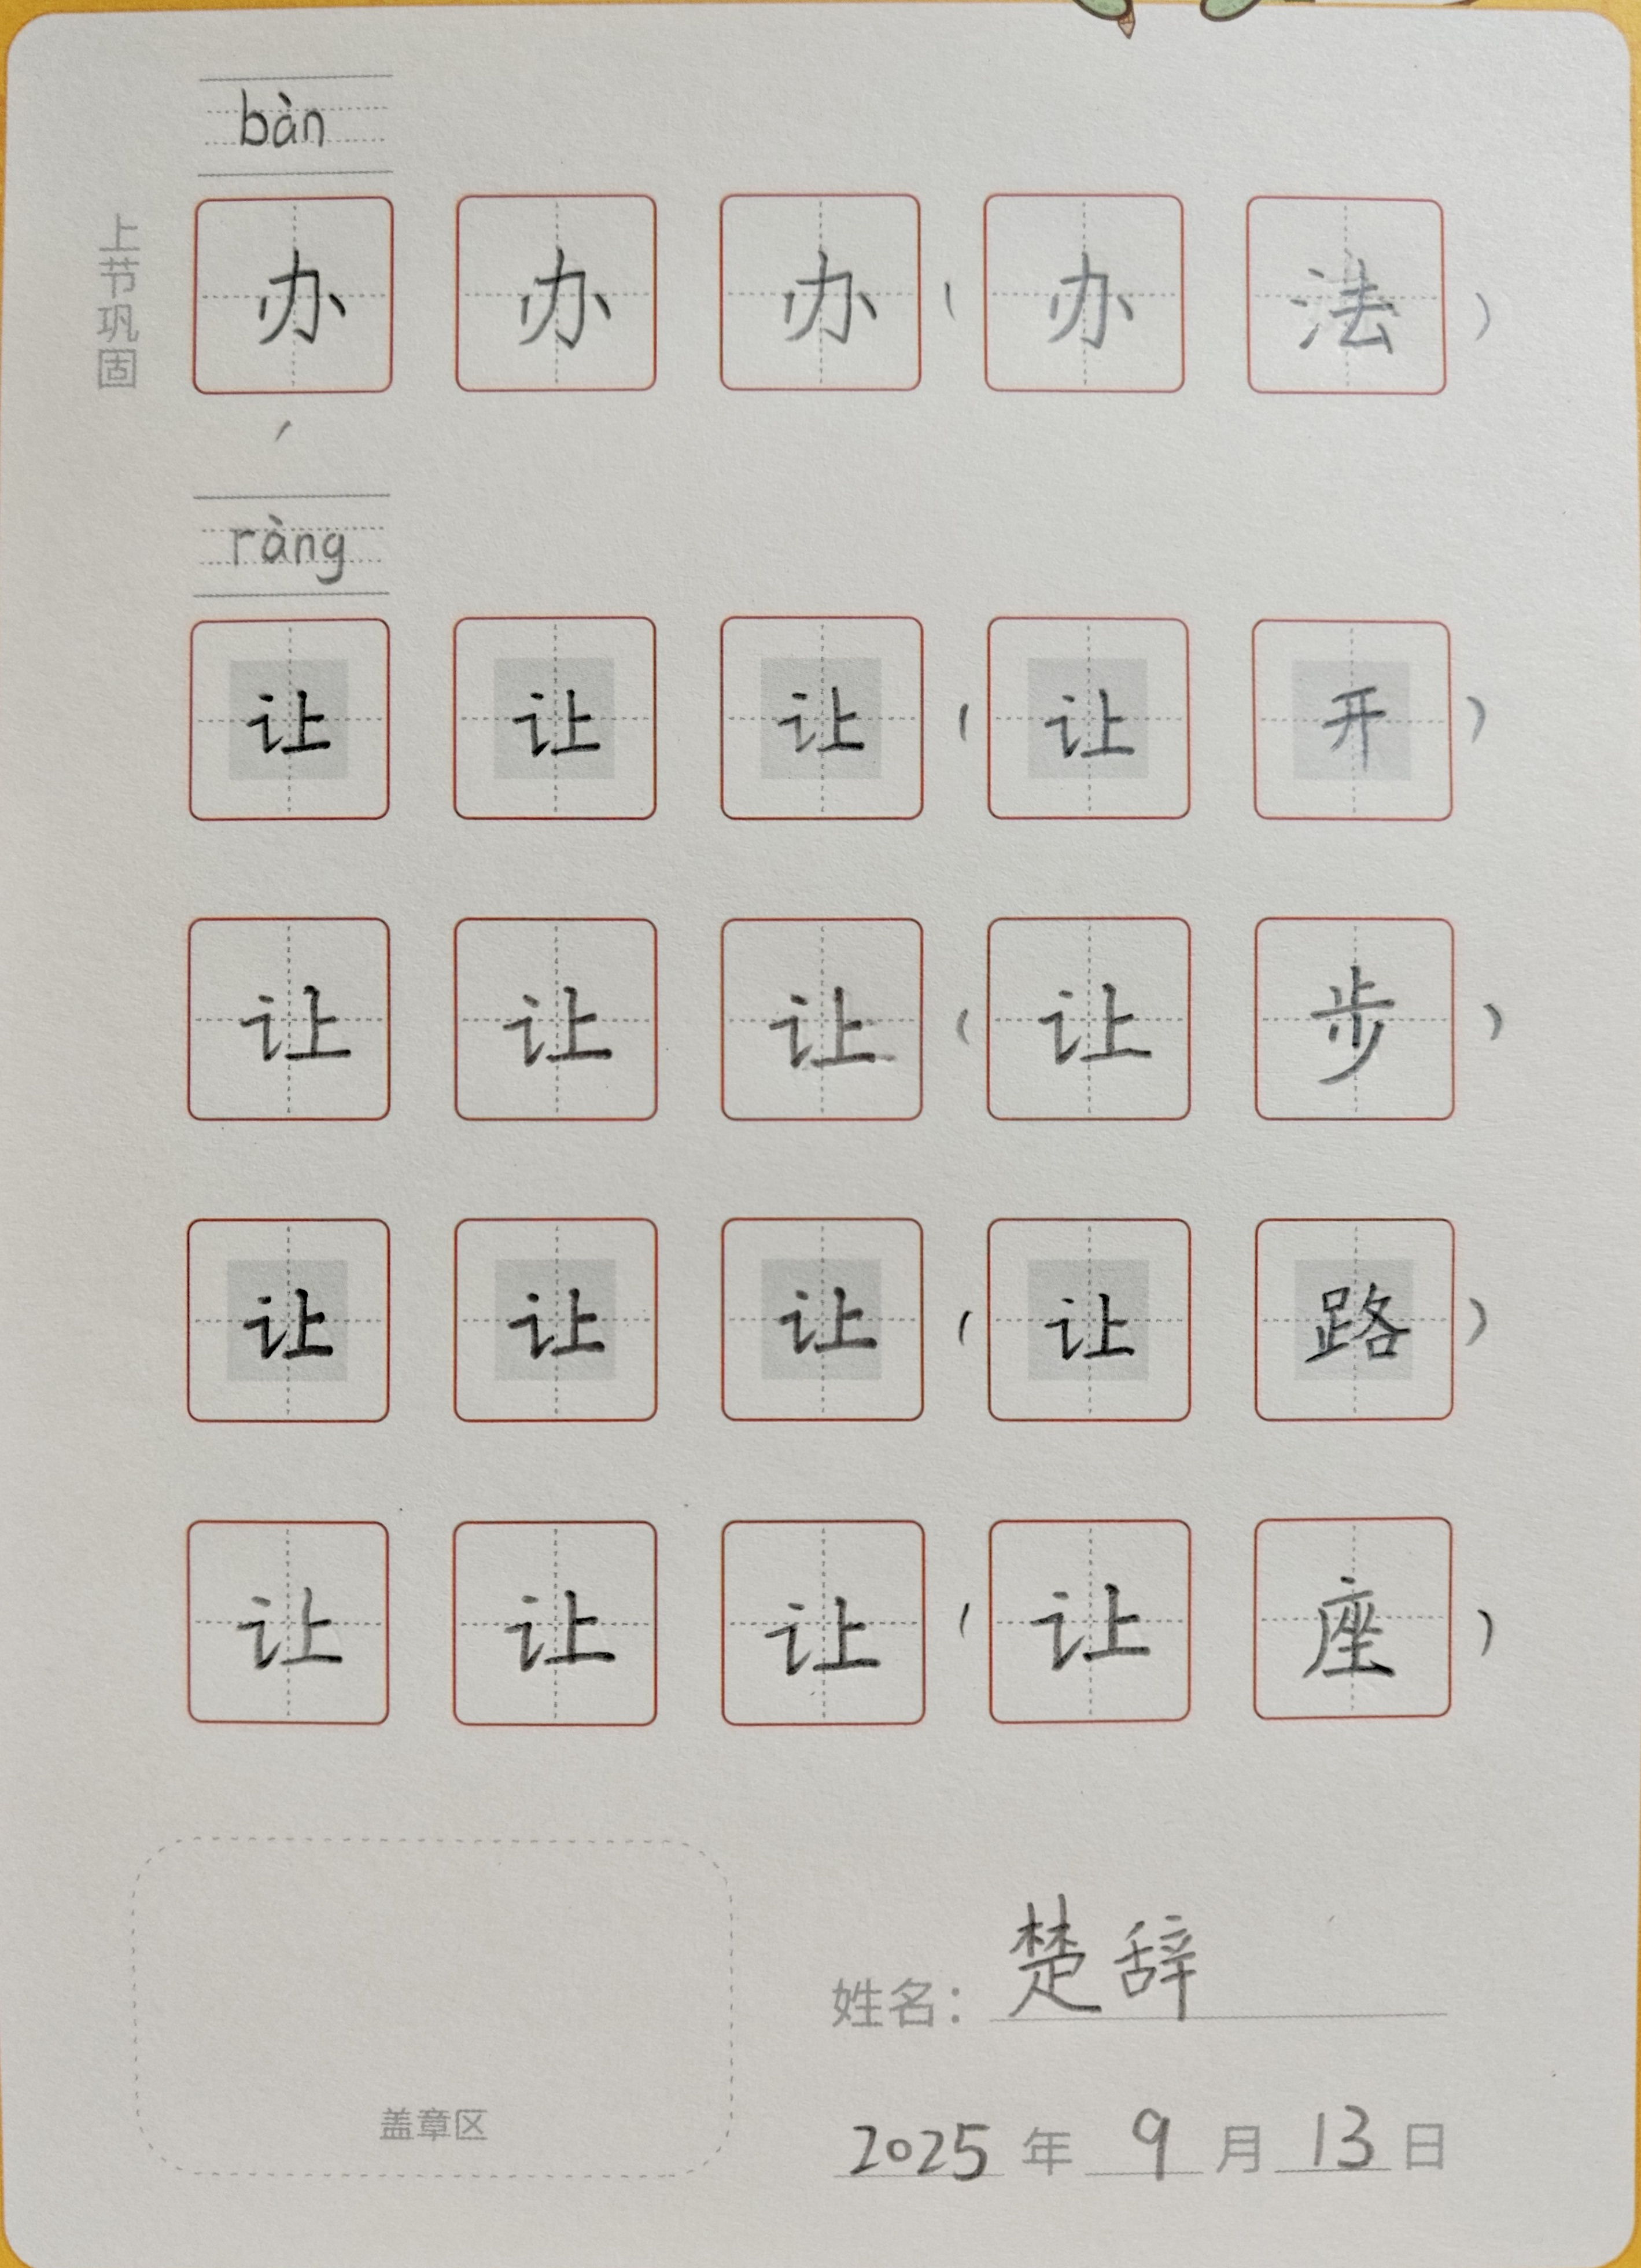 bàn
上节巩固
办 办 办 ( 办 法 )
ràng
让 让 让 ( 让 开 )
让 让 让 ( 让 步 )
让 让 让 ( 让 路 )
让 让 让 ( 让 座 )
姓名: 楚辞
盖章区
2025 年 9 月 13 日